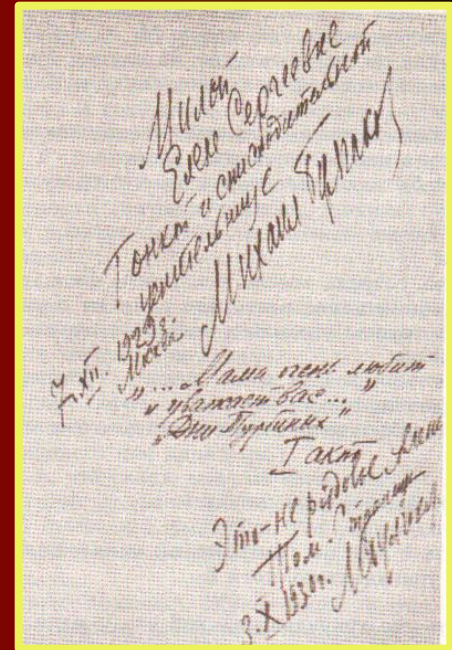 Милой
Елене Сергеевне
Тонкой и снисходительной
ценительнице
Михаил Булгаков
7.XII.1929 г.
Москва
"... Мама очень любит
и уважает вас..."
"Дни Турбиных"
I акт
Это - не рядовые
3.X.1930 г. М. Булгаков